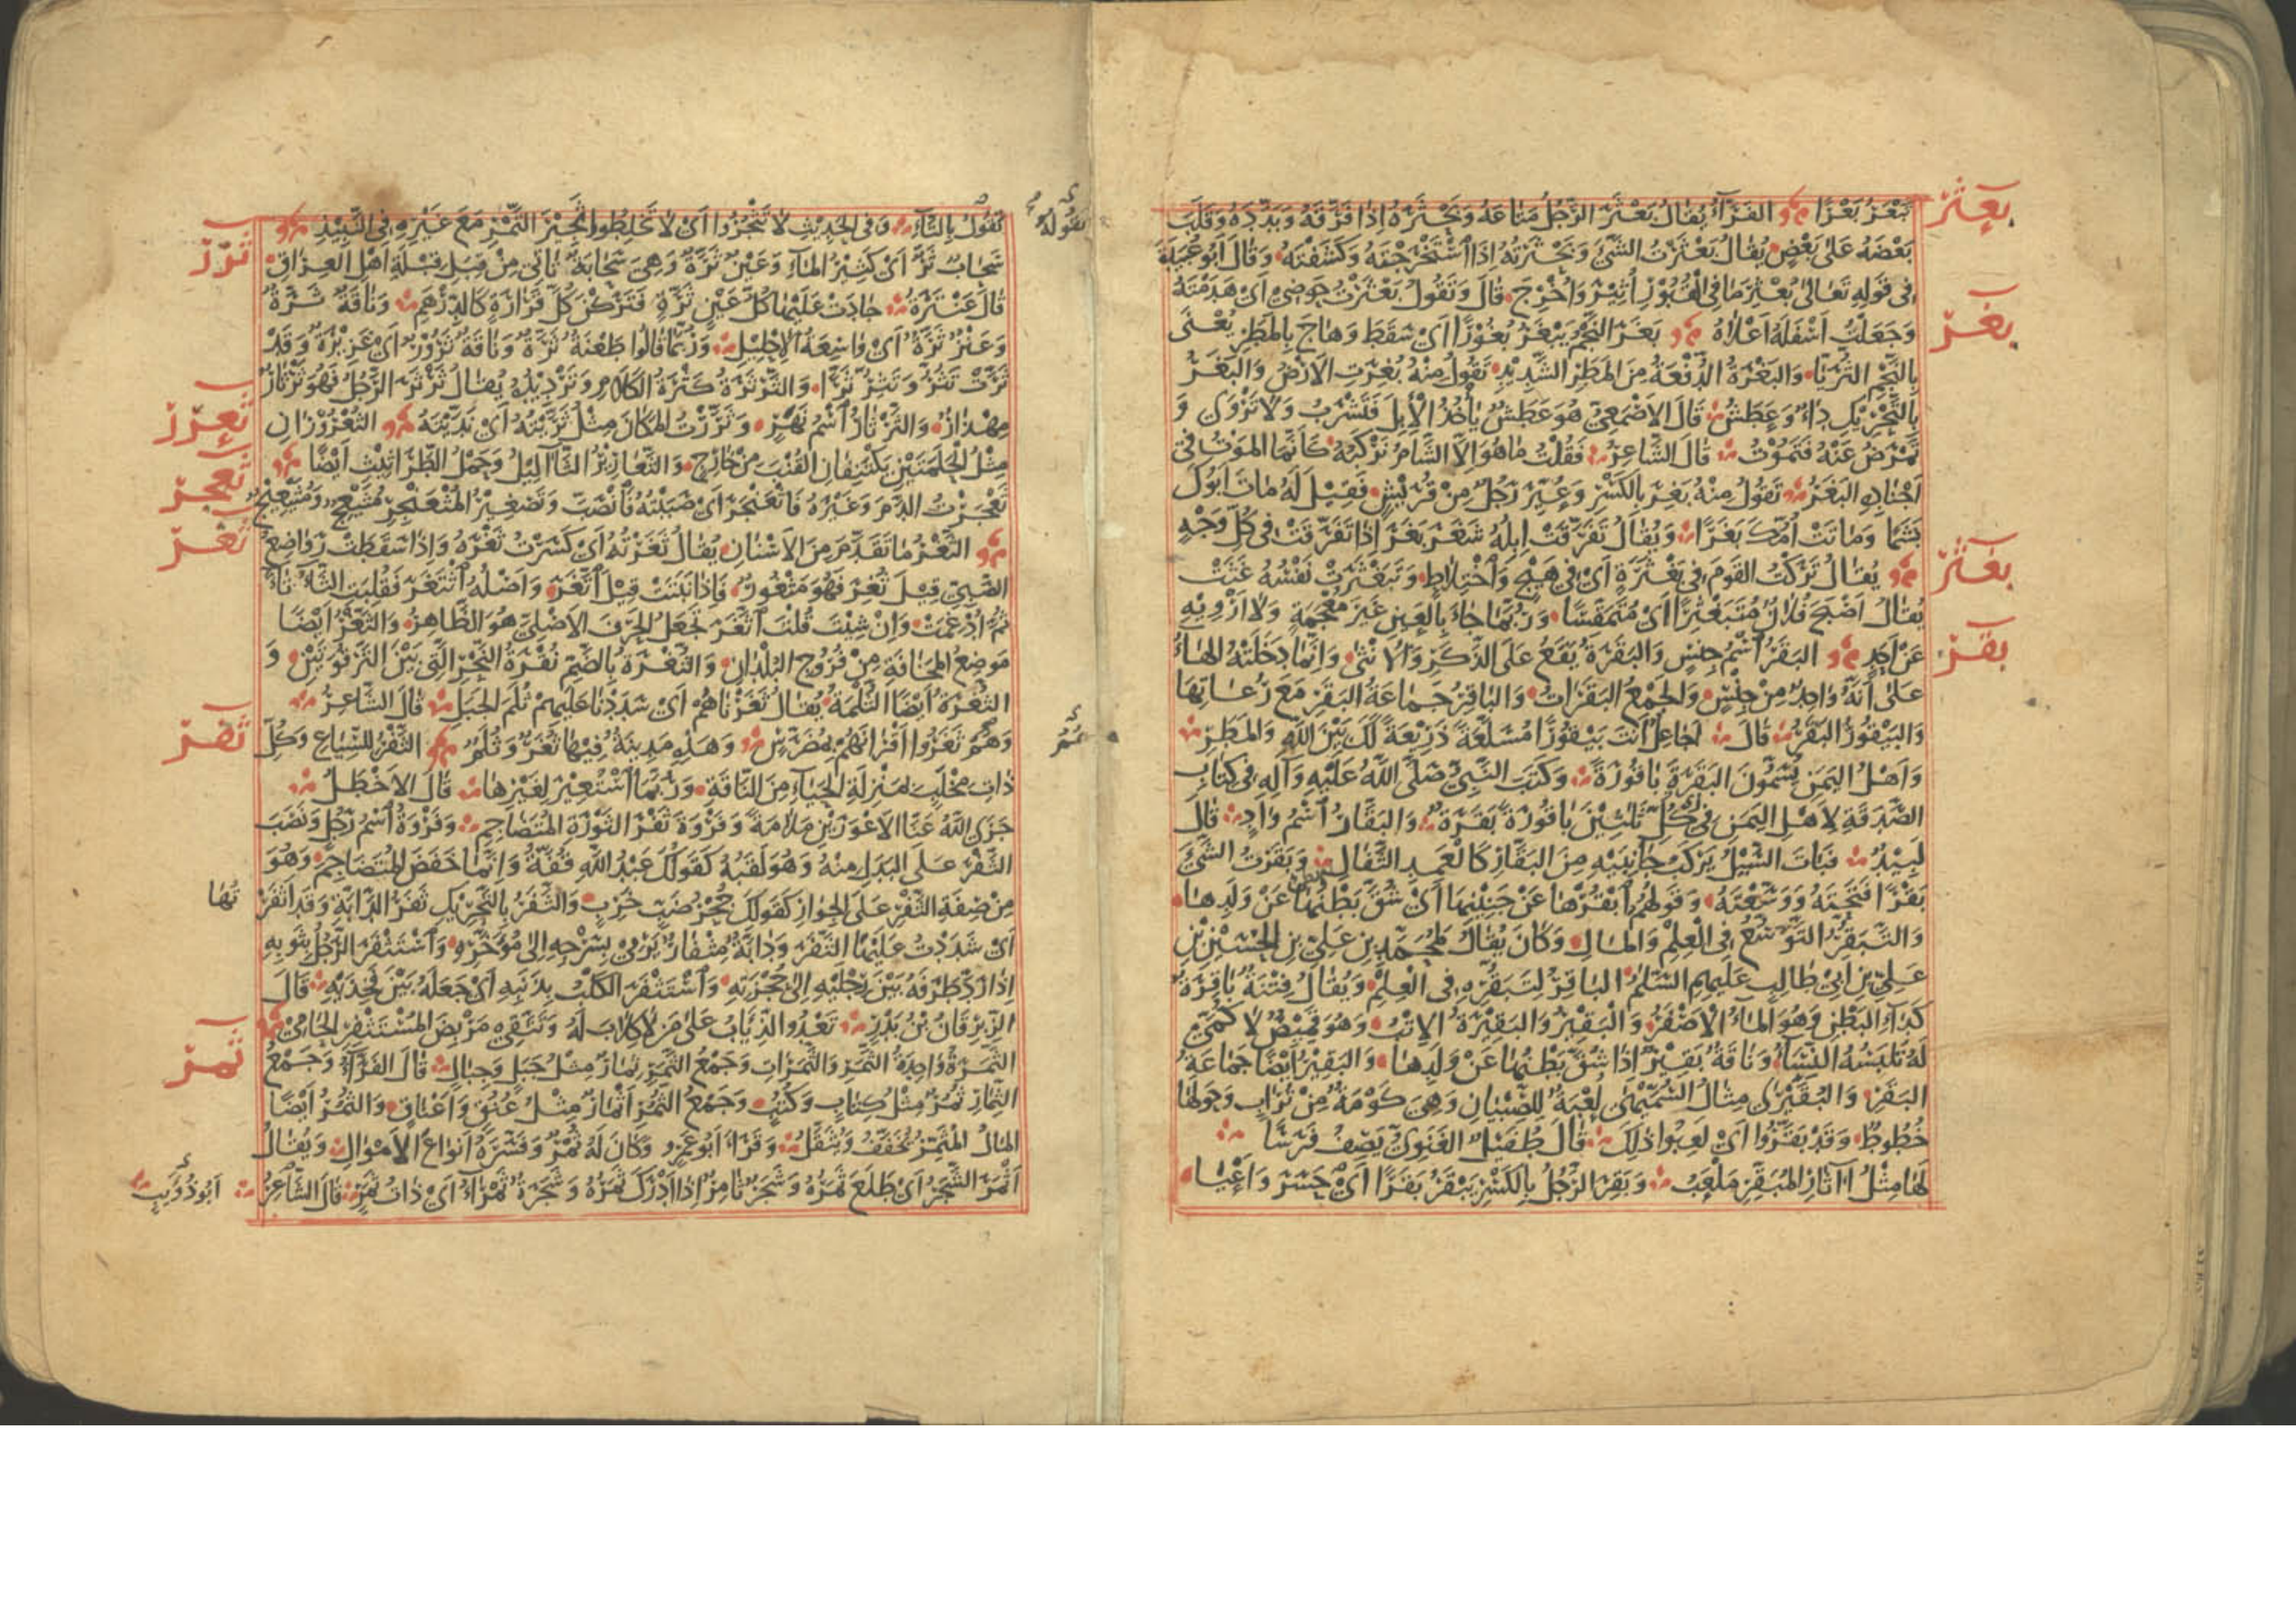 بعثر
تَبْعَرُ بَعْرًا الفَرَّاءُ يُقَالُ بَعْثَرَ الرَّجُلُ مَتَاعَهُ وَبَحْثَرَهُ إِذَا فَرَّقَهُ وَبَدَّدَهُ وَقَلَبَ
بَعْضَهُ عَلَى بَعْضٍ يُقَالُ بَعْثَرْتُ الشَّيْءَ وَبَحْثَرْتُهُ إِذَا اسْتَخْرَجْتَهُ وَكَشَفْتَهُ وَقَالَ أَبُو عُبَيْدَةَ
فِي قَوْلِهِ تَعَالَى بُعْثِرَ مَا فِي الْقُبُورِ أُثِيرَ وَأُخْرِجَ قَالَ وَتَقُولُ بَعْثَرْتُ حَوْضِي أَيْ هَدَمْتُهُ
بغر
وَجَعَلْتُ أَسْفَلَهُ أَعْلَاهُ بَغَرَ النَّجْمُ يَبْغُرُ بُغُورًا أَيْ سَقَطَ وَهَاجَ بِالْمَطَرِ يُعْنَى
بِالنَّجْمِ الثُّرَيَّا وَالْبَغْرَةُ الدُّفْعَةُ مِنَ الْمَطَرِ الشَّدِيدِ تَقُولُ مِنْهُ بُغِرَتِ الْأَرْضُ وَالْبَغَرُ
بِالتَّحْرِيكِ دَاءٌ وَعَطَشٌ قَالَ الْأَصْمَعِيُّ هُوَ عَطَشٌ يَأْخُذُ الْإِبِلَ فَتَشْرَبُ وَلَا تَرْوَى وَ
تَمْرَضُ عَنْهُ فَتَمُوتُ قَالَ الشَّاعِرُ فَقُلْتُ مَا هُوَ إِلَّا الشَّأْمُ تَرْكَبُهُ كَأَنَّمَا الْمَوْتُ فِي
أَجْنَادِهِ الْبَغَرُ تَقُولُ مِنْهُ بَغِرَ بِالْكَسْرِ وَعُيِّرَ رَجُلٌ مِنْ قُرَيْشٍ فَقِيلَ لَهُ مَاتَ أَبُوكَ
بَشَمًا وَمَاتَتْ أُمُّكَ بَغَرًا وَيُقَالُ تَفَرَّقَتْ إِبِلُهُ شَغَرَ بَغَرَ إِذَا تَفَرَّقَتْ فِي كُلِّ وَجْهٍ
بغثر
يُقَالُ تَرَكْتُ الْقَوْمَ فِي بَغْثَرَةٍ أَيْ فِي هَيْجٍ وَاخْتِلَاطٍ وَتَبَغْثَرَتْ نَفْسُهُ غَثَتْ
يُقَالُ أَصْبَحَ فُلَانٌ مُتَبَغْثِرًا أَيْ مُتَمَقِّسًا وَرُبَّمَا جَاءَ بِالْعَيْنِ غَيْرَ مُعْجَمَةٍ وَلَا أَرْوِيهِ
بقر
عَنْ أَحَدٍ الْبَقَرُ اسْمُ جِنْسٍ وَالْبَقَرَةُ يَقَعُ عَلَى الذَّكَرِ وَالْأُنْثَى وَإِنَّمَا دَخَلَتْهُ الْهَاءُ
عَلَى أَنَّهُ وَاحِدٌ مِنْ جِنْسٍ وَالْجَمْعُ الْبَقَرَاتُ وَالْبَاقِرُ جَمَاعَةُ الْبَقَرِ مَعَ رُعَاتِهَا
وَالْبَيْقُورُ الْبَقَرُ قَالَ أَجَاعِلٌ أَنْتَ بَيْقُورًا مُسَلَّعَةً ذَرِيعَةً لَكَ بَيْنَ اللَّهِ وَالْمَطَرِ
وَأَهْلُ الْيَمَنِ يُسَمُّونَ الْبَقَرَةَ بَاقُورَةً وَكَتَبَ النَّبِيُّ صَلَّى اللَّهُ عَلَيْهِ وَآلِهِ فِي كِتَابِ
الصَّدَقَةِ لِأَهْلِ الْيَمَنِ فِي كُلِّ ثَلَثِينَ بَاقُورَةً بَقَرَةٌ وَالْبَقَّارُ اسْمُ وَادٍ قَالَ
لَبِيدٌ فَبَاتَ السَّيْلُ يَرْكَبُ جَانِبَيْهِ مِنَ الْبَقَّارِ كَالْعَمِدِ الثَّفَالِ وَبَقَرْتُ الشَّيْءَ
بَقْرًا فَتَحْتَهُ وَوَسَّعْتَهُ وَقَوْلُهُمْ ابْقُرْهَا عَنْ جَنِينِهَا أَيْ شُقَّ بَطْنَهَا عَنْ وَلَدِهَا
وَالتَّبَقُّرُ التَّوَسُّعُ فِي الْعِلْمِ وَالْمَالِ وَكَانَ يُقَالُ لِمُحَمَّدِ بْنِ عَلِيِّ بْنِ الْحُسَيْنِ بْنِ
عَلِيِّ بْنِ أَبِي طَالِبٍ عَلَيْهِمُ السَّلَمُ الْبَاقِرُ لِتَبَقُّرِهِ فِي الْعِلْمِ وَيُقَالُ فِتْنَةٌ بَاقِرَةٌ
كَدَاءِ الْبَطْنِ وَهُوَ الْمَاءُ الْأَصْفَرُ وَالْبَقِيرُ وَالْبَقِيرَةُ الْإِتْبُ وَهُوَ قَمِيصٌ لَا كُمَّيْ
لَهُ تَلْبَسُهُ النِّسَاءُ وَنَاقَةٌ بَقِيرٌ إِذَا شُقَّ بَطْنُهَا عَنْ وَلَدِهَا وَالْبَقِيرُ أَيْضًا جَمَاعَةُ
الْبَقَرِ وَالْبُقَّيْرَى مِثَالُ السُّمَّيْهَى لُعْبَةٌ لِلصِّبْيَانِ وَهِيَ كَوْمَةٌ مِنْ تُرَابٍ وَحَوْلَهَا
خُطُوطٌ وَقَدْ بَقَّرُوا أَيْ لَعِبُوا ذَلِكَ قَالَ طُفَيْلٌ الْغَنَوِيُّ يَصِفُ فَرَسًا
لَهَا مِثْلُ آثَارِ الْمُبَقِّرِ مَلْعَبُ وَبَقِرَ الرَّجُلُ بِالْكَسْرِ يَبْقَرُ بَقَرًا أَيْ حَسَرَ وَأَعْيَا
تَقُولُ بِالتَّاءِ وَفِي الْحَدِيثِ لَا تَثْجُرُوا أَيْ لَا تَخْلِطُوا ثَجِيرَ التَّمْرِ مَعَ غَيْرِهِ فِي النَّبِيذِ
ثرر
سَحَابٌ ثَرٌّ أَيْ كَثِيرُ الْمَاءِ وَعَيْنٌ ثَرَّةٌ وَهِيَ سَحَابَةٌ تَأْتِي مِنْ قِبَلِ قِبْلَةِ أَهْلِ الْعِرَاقِ
قَالَ عَنْتَرَةُ جَادَتْ عَلَيْهَا كُلُّ عَيْنٍ ثَرَّةٍ فَتَرَكْنَ كُلَّ قَرَارَةٍ كَالدِّرْهَمِ وَنَاقَةٌ ثَرَّةٌ
وَعَنْزٌ ثَرَّةٌ أَيْ وَاسِعَةُ الْإِحْلِيلِ وَرُبَّمَا قَالُوا طَعْنَةٌ ثَرَّةٌ وَنَاقَةٌ ثَرُورٌ أَيْ غَزِيرَةٌ وَقَدْ
ثَرَّتْ تَثُرُّ وَتَثِرُّ ثَرًّا وَالثَّرْثَرَةُ كَثْرَةُ الْكَلَامِ وَتَرْدِيدُهُ يُقَالُ ثَرْثَرَ الرَّجُلُ فَهُوَ ثَرْثَارٌ
ثعرر
مِهْذَارٌ وَالثَّرْثَارُ اسْمُ نَهْرٍ وَثَرَّرْتُ الْمَكَانَ مِثْلُ ثَرَّيْتُهُ أَيْ نَدَّيْتُهُ الثُّعْرُورَانِ
مِثْلُ الْحَلَمَتَيْنِ يَكْتَنِفَانِ الْقُنْبَ مِنْ خَارِجٍ وَالثَّعَارِيرُ الثَّآلِيلُ وَحَمْلُ الطَّرَاثِيثِ أَيْضًا
ثعجر
ثَعْجَرْتُ الدَّمَ وَغَيْرَهُ فَاثْعَنْجَرَ أَيْ صَبَبْتُهُ فَانْصَبَّ وَتَصْغِيرُ الْمُثْعَنْجِرِ مُثَيْعِجٌ وَمُثَيْعِيجٌ
ثغر
الثَّغْرُ مَا تَقَدَّمَ مِنَ الْأَسْنَانِ يُقَالُ ثَغَرْتُهُ أَيْ كَسَرْتُ ثَغْرَهُ وَإِذَا سَقَطَتْ رَوَاضِعُ
الصَّبِيِّ قِيلَ ثُغِرَ فَهُوَ مَثْغُورٌ فَإِذَا نَبَتَتْ قِيلَ اتَّغَرَ وَأَصْلُهُ اثْتَغَرَ فَقُلِبَتِ الثَّاءُ تَاءً
ثُمَّ أُدْغِمَتْ وَإِنْ شِئْتَ قُلْتَ اثَّغَرَ تَجْعَلُ الْحَرْفَ الْأَصْلِيَّ هُوَ الظَّاهِرُ وَالثَّغْرُ أَيْضًا
مَوْضِعُ الْمَخَافَةِ مِنْ فُرُوجِ الْبُلْدَانِ وَالثُّغْرَةُ بِالضَّمِّ نُقْرَةُ النَّحْرِ الَّتِي بَيْنَ التَّرْقُوَتَيْنِ وَ
الثُّغْرَةُ أَيْضًا الثُّلْمَةُ يُقَالُ ثَغَرْنَاهُمْ أَيْ سَدَدْنَا عَلَيْهِمْ ثُلَمَ الْجَبَلِ قَالَ الشَّاعِرُ
ثفر
وَهُمْ ثَغَرُوا أَقْرَانَهُمْ بِمُضَرَّسٍ وَهَذِهِ مَدِينَةٌ فِيهَا ثُغَرٌ وَثُلَمٌ الثَّفْرُ لِلسِّبَاعِ وَكُلِّ
ذَاتِ مِخْلَبٍ بِمَنْزِلَةِ الْحَيَاءِ مِنَ النَّاقَةِ وَرُبَّمَا اسْتُعِيرَ لِغَيْرِهَا قَالَ الْأَخْطَلُ
جَزَى اللَّهُ عَنَّا الْأَعْوَرَيْنِ مَلَامَةً وَفَرْوَةَ ثَفْرَ الثَّوْرَةِ الْمُتَضَاجِمِ وَفَرْوَةُ اسْمُ رَجُلٍ وَنَصَبَ
الثَّفْرَ عَلَى الْبَدَلِ مِنْهُ وَهُوَ لَقَبُهُ كَقَوْلِكَ عَبْدُ اللَّهِ قُفَّةُ وَإِنَّمَا خَفَضَ الْمُتَضَاجِمِ وَهُوَ
مِنْ صِفَةِ الثَّفْرِ عَلَى الْجِوَارِ كَقَوْلِكَ جُحْرُ ضَبٍّ خَرِبٍ وَالثَّفَرُ بِالتَّحْرِيكِ ثَفَرُ الدَّابَّةِ وَقَدْ أَثْفَرْ تُهَا
أَيْ شَدَدْتُ عَلَيْهَا الثَّفَرَ وَدَابَّةٌ مِثْفَارٌ يَرْمِي بِسَرْجِهِ إِلَى مُؤَخَّرِهِ وَاسْتَثْفَرَ الرَّجُلُ بِثَوْبِهِ
إِذَا رَدَّ طَرَفَهُ بَيْنَ رِجْلَيْهِ إِلَى حُجْزَتِهِ وَاسْتَثْفَرَ الْكَلْبُ بِذَنَبِهِ أَيْ جَعَلَهُ بَيْنَ فَخِذَيْهِ قَالَ
الزِّبْرِقَانُ بْنُ بَدْرٍ تَعْدُو الذِّئَابُ عَلَى مَنْ لَا كِلَابَ لَهُ وَتَتَّقِي مَرْبِضَ الْمُسْتَثْفِرِ الْحَامِي
ثمر
الثَّمَرَةُ وَاحِدَةُ الثَّمَرِ وَالثَّمَرَاتِ وَجَمْعُ الثَّمَرِ ثِمَارٌ مِثْلُ جَبَلٍ وَجِبَالٍ قَالَ الْفَرَّاءُ وَجَمْعُ
الثِّمَارِ ثُمُرٌ مِثْلُ كِتَابٍ وَكُتُبٍ وَجَمْعُ الثُّمُرِ أَثْمَارٌ مِثْلُ عُنُقٍ وَأَعْنَاقٍ وَالثُّمُرُ أَيْضًا
الْمَالُ الْمُثَمَّرُ يُخَفَّفُ وَيُثَقَّلُ وَقَرَأَ أَبُو عَمْرٍو وَكَانَ لَهُ ثُمْرٌ وَفَسَّرَهُ أَنْوَاعَ الْأَمْوَالِ وَيُقَالُ
أَثْمَرَ الشَّجَرُ أَيْ طَلَعَ ثَمَرُهُ وَشَجَرٌ ثَامِرٌ إِذَا أَدْرَكَ ثَمَرُهُ وَشَجَرَةٌ ثَمْرَاءُ أَيْ ذَاتُ ثَمَرٍ قَالَ الشَّاعِرُ أَبُو ذُؤَيْبٍ